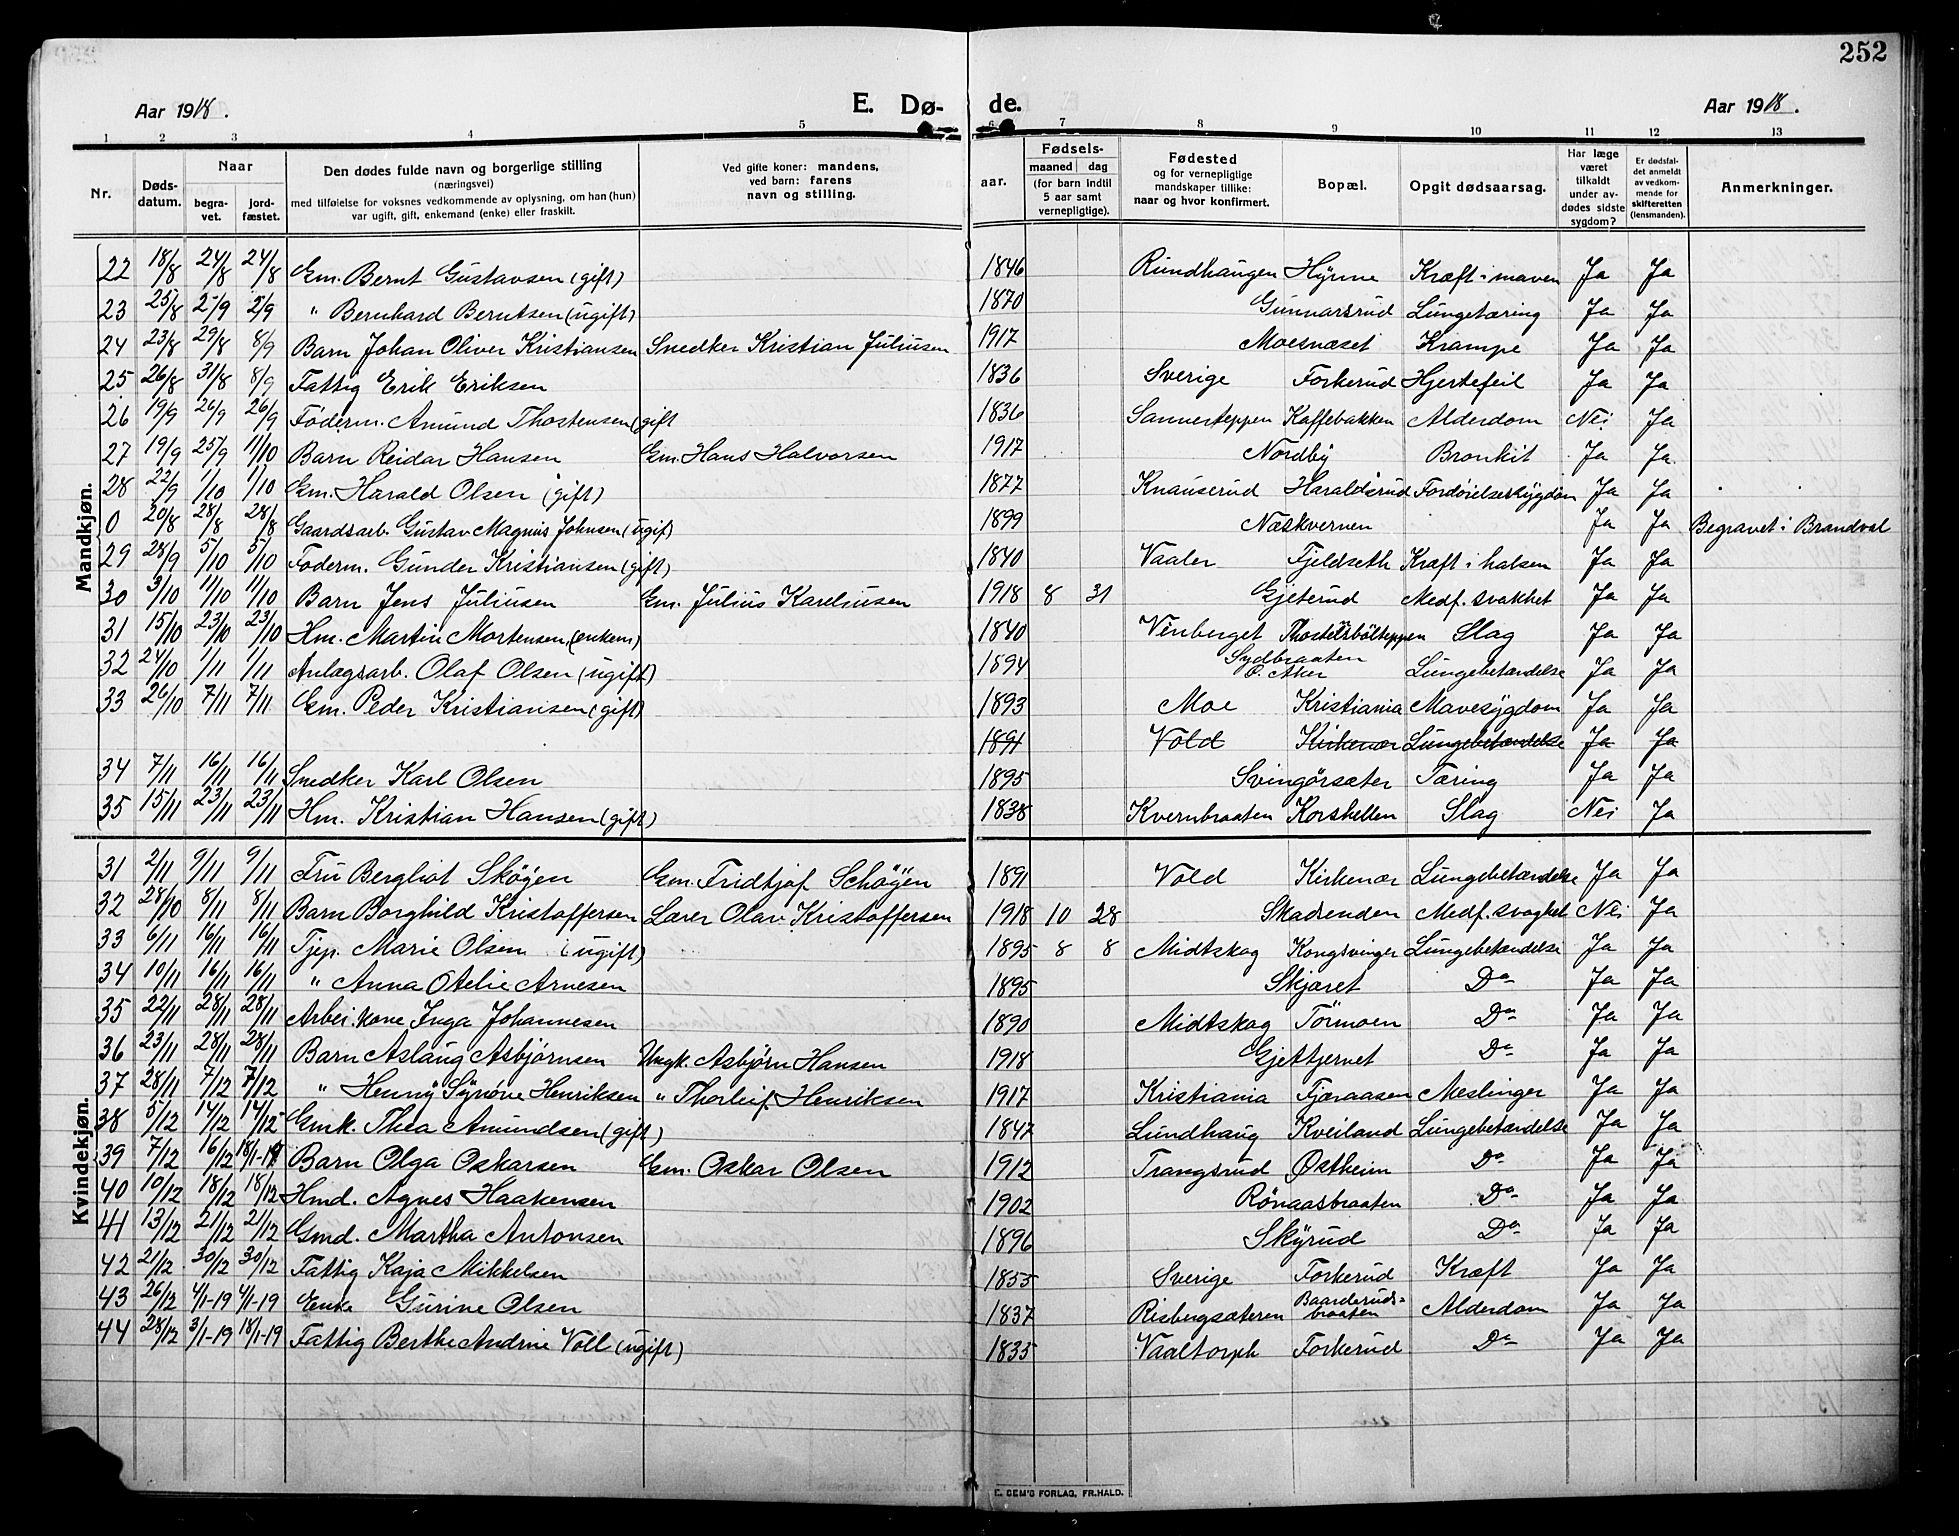 252
Aar 1918. E. Dø- de. Aar 1918.
1 2 3 4 5 6 7 8 9 10 11 12 13
Nr. Døds-datum. Naar begra-vet. jord-fæstet. Den dødes fulde navn og borgerlige stilling (næringsvei) med tilføielse for voksnes vedkommende av oplysning, om han (hun) var ugift, gift, enkemand (enke) eller fraskilt. Ved gifte koner: mandens, ved barn: farens navn og stilling. aar. Fødsels- maaned dag (for barn indtil 5 aar samt vernepligtige). Fødested og for vernepligtige mandskaper tillike: naar og hvor konfirmert. Bopæl. Opgit dødsaarsag. Har læge været tilkaldt under av-dødes sidste sygdom? Er dødsfal-det anmeldt av vedkom-mende for skifteretten (lensmanden). Anmerkninger.
Mandkjøn.
22 18/8 24/8 24/8 Gm. Bernt Gustavsen (gift) 1846 Rundhaugen Hyrme Kræft i maven Ja Ja
23 25/8 2/9 2/9 " Bernhard Berntsen (ugift) 1870 Gunnarsrud Lungetæring Ja Ja
24 23/8 29/8 8/9 Barn Johan Oliver Kristiansen Snedker Kristian Juliusen 1917 Moesnæset Krampe Ja Ja
25 26/8 31/8 8/9 Fattig Erik Eriksen 1836 Sverige Forkerud Hjertefeil Ja Ja
26 19/9 26/9 26/9 Føderm. Amund Thostensen (gift 1836 Sannerteppen Kaffebakken Alderdom Nei Ja
27 19/9 25/9 11/10 Barn Reidar Hansen Gm. Hans Halvorsen 1917 Nordby Bronkit Ja Ja
28 22/9 1/10 1/10 Gm. Harald Olsen (gift) 1877 Knauserud Haraldsrud Fordøielsessygdom Ja Ja
0 20/8 28/8 28/8 Gaardsarb. Gustav Magnus Johnsen (ugift) 1899 Næskvernen Ja Ja Begravet i Brandval
29 28/9 5/10 5/10 Føderm. Gunder Kristiansen (gift) 1840 Vaaler Fjeldseth Kræft i halsen Ja Ja
30 3/10 11/10 11/10 Barn Jens Juliusen Gm. Julius Karelsiusen 1918 8 31 Gjeterud Medf. svakhet Ja Ja
31 15/10 23/10 23/10 Hm. Martin Mortensen (enkem) 1840 Vinberget Thostersbölteppen Slag Ja Ja
32 24/10 1/11 1/11 Anlægsarb. Olaf Olsen (ugift) 1894 Sydbraaten Ö. Aker Lungebetændelse Ja Ja
33 26/10 7/11 7/11 Gm. Peder Kristiansen (gift) 1893 Moe Kristiania Mavesygdom Ja Ja
1891 Vold Kirkenær Lungebetændelse Ja Ja
34 7/11 16/11 16/11 Snedker Karl Olsen 1895 Svingörsæter Tæring Ja Ja
35 15/11 23/11 23/11 Hm. Kristian Hansen (gift) 1838 Kvernbraaten Korshellen Slag Nei Ja
Kvindekjøn.
31 2/11 9/11 9/11 Fru Bergliot Skøyen Gm. Fridtjof Schøyen 1891 Vold Kirkenær Lungebetændelse Ja Ja
32 28/10 8/11 8/11 Barn Borghild Kristoffersen Lærer Olav Kristoffersen 1918 10 28 Skadsenden Medf. svaghet Nei Ja
33 6/11 16/11 16/11 Tjep. Marie Olsen (ugift) 1895 8 8 Midtskog Kongsvinger Lungebetændelse Ja Ja
34 10/11 16/11 16/11 " Anna Otelie Arnesen 1895 Skjæret Do Ja Ja
35 22/11 28/11 28/11 Arbei.kone Inga Johannesen 1890 Midtskog Törmoen Do Ja Ja
36 23/11 28/11 28/11 Barn Aslaug Asbjørnsen Ungk. Asbjørn Hansen 1918 Gjettjernet Do Ja Ja
37 28/11 7/12 7/12 " Henny Synøve Henriksen " Thorleif Henriksen 1917 Kristiania Fjæraasen Meslinger Ja Ja
38 5/12 14/12 14/12 Gmk. Thea Amundsen (gift) 1847 Lundhaug Kveiland Lungebetændelse Ja Ja
39 7/12 16/12 18/1-19 Barn Olga Oskarsen Gm. Oskar Olsen 1912 Trangsrud Østheim Do Ja Ja
40 10/12 18/12 18/12 Hmd. Agnes Haakensen 1902 Rönaasbraaten Do Ja Ja
41 13/12 21/12 21/12 Gmd. Martha Antonsen 1896 Skyrud Do Ja Ja
42 21/12 30/12 30/12 Fattig Kaja Mikkelsen 1855 Sverige Forkerud Kræft Ja Ja
43 26/12 4/1-19 4/1-19 Enke Gurine Olsen 1837 Risbergsæteren Baarderuds-braaten Alderdom Ja Ja
44 28/12 3/1-19 18/1-19 Fattig Berthe Andrine Voll (ugift) 1835 Vaaltorph Forkerud Do Ja Ja
E. SEM'S FORLAG, FR.HALD.